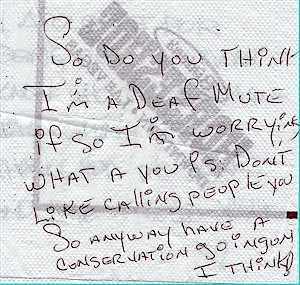 So Do you THINK
I'm a DEAF MUTE
if So I'm WORRYING
WHAT A YOU Ps: DON'T
LIKE CALLING PEOPLE YOU
So ANYWAY HAVE A
CONSERVATION going on
I THINK